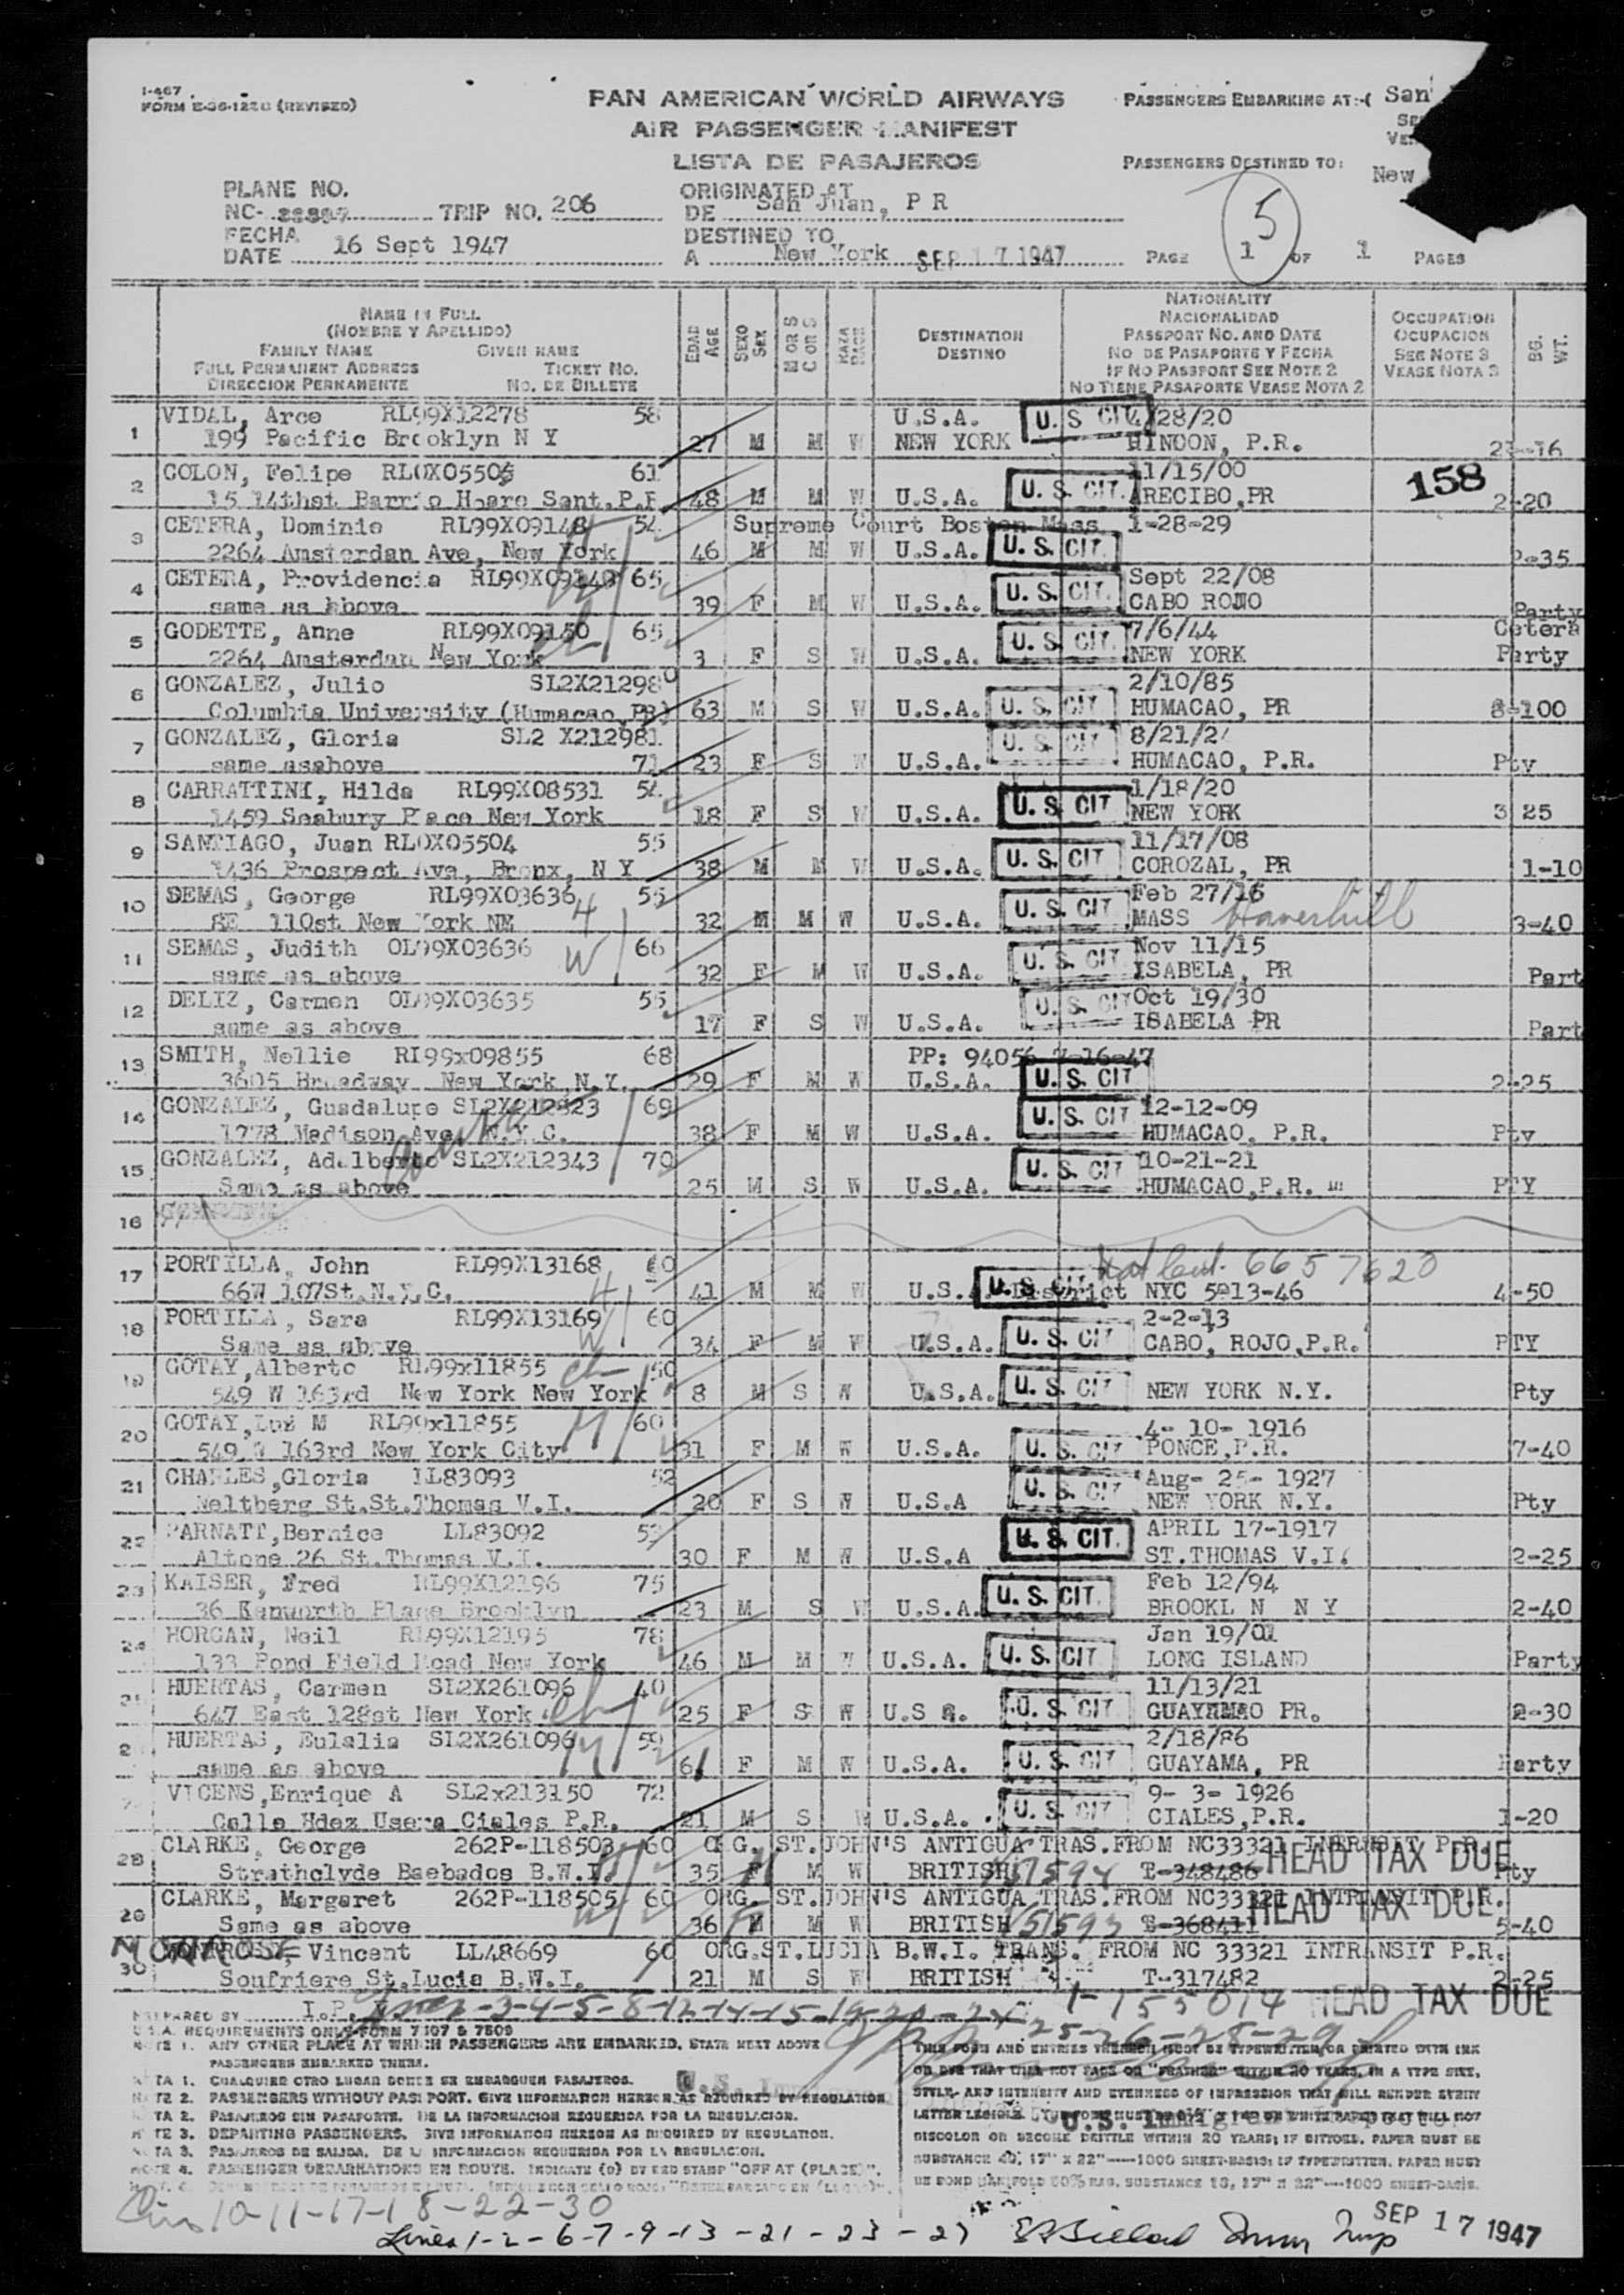 I-467
FORM E-36-122G (REVISED)
PAN AMERICAN WORLD AIRWAYS
AIR PASSENGER MANIFEST
LISTA DE PASAJEROS
PASSENGERS EMBARKING AT:-( San
PASSENGERS DESTINED TO:
New
PLANE NO.
NC- TRIP NO. 206
FECHA
DATE 16 Sept 1947
ORIGINATED AT
DE San Juan, P R
DESTINED TO
A New York SEP 17 1947
5
PAGE 1 OF 1 PAGES
NAME IN FULL
(NOMBRE Y APELLIDO)
FAMILY NAME GIVEN NAME
FULL PERMANENT ADDRESS TICKET NO.
DIRECCION PERMANENTE NO. DE BILLETE
EDAD AGE
SEXO SEX
M OR S C OR S
RAZA RACE
DESTINATION
DESTINO
NATIONALITY
NACIONALIDAD
PASSPORT NO. AND DATE
NO DE PASAPORTE Y FECHA
IF NO PASSPORT SEE NOTE 2
NO TIENE PASAPORTE VEASE NOTA 2
OCCUPATION
OCUPACION
SEE NOTE 3
VEASE NOTA 3
BG. WT.
1 VIDAL, Arce RL99X12278 58 U.S.A. U. S CIT. /28/20
199 Pacific Brooklyn N Y 27 M M W NEW YORK HINCON, P.R. -16
2 COLON, Felipe RL0X05505 61 U. S. CIT. 11/15/00 158
15 14thst Barrio Hoare Sant.P.R 48 M M W U.S.A. ARECIBO,PR 2-20
3 CETERA, Dominic RL99X09148 54 Supreme Court Boston Mass 1-28-29
2264 Amsterdan Ave, New York 46 M M W U.S.A. U. S. CIT. 2-35
4 CETERA, Providencia RL99X09149 65 U. S. CIT. Sept 22/08
same as above 39 F M W U.S.A. CABO ROJO Party
5 GODETTE, Anne RL99X09150 65 U. S. CIT. 7/6/44 Cetera
2264 Amsterdan New York 3 F S W U.S.A. NEW YORK Party
6 GONZALEZ, Julio SL2X212980 2/10/85
Columbia University (Humacao,PR) 63 M S W U.S.A. U. S. CIT HUMACAO, PR 8-100
7 GONZALEZ, Gloria SL2 X212981 U. S. CIT 8/21/24
same asabove 71 23 F S W U.S.A. HUMACAO, P.R. Pty
8 CARRATTINI, Hilda RL99X08531 54 U. S. CIT 1/18/20
1459 Seabury Place New York 18 F S W U.S.A. NEW YORK 3 25
9 SANTIAGO, Juan RL0X05504 55 U. S. CIT 11/17/08
1436 Prospect Ave, Bronx, N Y 38 M M W U.S.A. COROZAL, PR 1-10
10 SEMAS, George RL99X03636 H 55 U. S. CIT Feb 27/16
8E 110st New York NE 32 M M W U.S.A. MASS Haverhill 3-40
11 SEMAS, Judith OL99X03636 W 66 U. S. CIT Nov 11/15
same as above 32 F M W U.S.A. ISABELA, PR Part
12 DELIZ, Carmen OL99X03635 55 U. S. CIT Oct 19/30
same as above 17 F S W U.S.A. ISABELA PR Part
13 SMITH, Nellie RL99x09855 68 PP: 94056 7-16-47
3605 Broadway New York N.Y. 29 F M W U.S.A. U. S. CIT 2-25
14 GONZALEZ, Guadalupe SL2X212323 69 U. S. CIT 12-12-09
1778 Madison Ave N.Y.C. 38 F M W U.S.A. HUMACAO, P.R. Pty
15 GONZALEZ, Adalberto SL2X212343 70 U. S. CIT 10-21-21
Same as above 25 M S W U.S.A. HUMACAO,P.R. PTY
16
17 PORTILLA, John RL99X13168 60 Nat Cert. 6657620
66W 107St.N.Y.C. 41 M M W U.S.A. U. S. CIT District NYC 5-13-46 4-50
18 PORTILLA, Sara RL99X13169 60 U. S. CIT 2-2-13
Same as above 34 F M W U.S.A. CABO, ROJO,P.R. PTY
19 GOTAY,Alberto RL99x11855 ch 50
549 W 163rd New York New York 8 M S W U.S.A. U. S. CIT NEW YORK N.Y. Pty
20 GOTAY,Luz M RL99x11855 M 60 4- 10- 1916
549 W 163rd New York City 31 F M W U.S.A. U. S. CIT PONCE,P.R. 7-40
21 CHARLES,Gloria LL83093 52 U. S. CIT Aug- 25- 1927
Neltberg St.St.Thomas V.I. 20 F S W U.S.A NEW YORK N.Y. Pty
22 PARNATT,Bernice LL83092 53 U. S. CIT. APRIL 17-1917
Altone 26 St.Thomas V.I. 30 F M W U.S.A ST.THOMAS V.I. 2-25
23 KAISER, Fred RL99X12196 75 U. S. CIT. Feb 12/94
36 Kenworth Place Brooklyn 23 M S W U.S.A. BROOKL N N Y 2-40
24 HORGAN, Neil RL99X12195 78 Jan 19/01
133 Pond Field Road New York 46 M M W U.S.A. U. S. CIT. LONG ISLAND Party
25 HUERTAS, Carmen SL2X261096 ch 40 11/13/21
647 East 128st New York 25 F S W U.S A. U. S. CIT GUAYAMAO PR. 2-30
26 HUERTAS, Eulalia SL2X261096 M 59 2/18/86
same as above 61 F M W U.S.A. U. S. CIT GUAYAMA, PR Party
27 VICENS,Enrique A SL2x213150 72 9- 3- 1926
Calle Hdez Usera Ciales P.R. 21 M S W U.S.A. U. S. CIT CIALES,P.R. 1-20
28 CLARKE, George 262P-118503 60 ORG. ST.JOHN'S ANTIGUA TRAS.FROM NC33321 INTRANSIT P.R.
Strathclyde Baebados B.W.I. 35 M M W BRITISH 151594 T-348486 HEAD TAX DUE Pty
29 CLARKE, Margaret 262P-118505 60 ORG. ST.JOHN'S ANTIGUA TRAS.FROM NC33321 INTRANSIT P.R.
Same as above 36 F M W BRITISH 151593 T-368411 HEAD TAX DUE 5-40
30 MONROSE, Vincent LL48669 60 ORG.ST.LUCIA B.W.I. TRANS. FROM NC 33321 INTRANSIT P.R.
Soufriere St.Lucia B.W.I. 21 M S W BRITISH T-317482 2-25
1-155014 HEAD TAX DUE
PREPARED BY I.P. Lines-3-4-5-8-12-14-15-19-20-24
25-26-28-29
U.S.A. REQUIREMENTS ONLY FORM 7507 & 7509
NOTE 1. ANY OTHER PLACE AT WHICH PASSENGERS ARE EMBARKED, STATE NEXT ABOVE
PASSENGERS EMBARKED THERE.
NOTA 1. CUALQUIER OTRO LUGAR DONDE SE EMBARQUEN PASAJEROS.
NOTE 2. PASSENGERS WITHOUT PASSPORT, GIVE INFORMATION HEREON AS REQUIRED BY REGULATION
NOTA 2. PASAJEROS SIN PASAPORTE, DE LA INFORMACION REQUERIDA POR LA REGULACION.
NOTE 3. DEPARTING PASSENGERS, GIVE INFORMATION HEREON AS REQUIRED BY REGULATION.
NOTA 3. PASAJEROS DE SALIDA, DE LA INFORMACION REQUERIDA POR LA REGULACION.
NOTE 4. PASSENGER DEBARKATIONS EN ROUTE. INDICATE (D) BY RED STAMP "OFF AT (PLACE)".
THIS FORM AND ENTRIES THEREON MUST BE TYPEWRITTEN OR PRINTED WITH INK
OR DYE THAT WILL NOT FADE OR "FEATHER" WITHIN 20 YEARS, IN A TYPE SIZE,
STYLE AND INTENSITY AND EVENNESS OF IMPRESSION THAT WILL RENDER EVERY
LETTER LEGIBLE. THAT WILL NOT
DISCOLOR OR BECOME BRITTLE WITHIN 20 YEARS; IF DITTOED, PAPER MUST BE
SUBSTANCE 40, 17" X 22"-----1000 SHEET-BASIS; IF TYPEWRITTEN, PAPER MUST
BE BOND MANIFOLD 50% RAG, SUBSTANCE 18, 17" X 22"----1000 SHEET-BASIS.
10-11-17-18-22-30
Lines 1-2-6-7-9-13-21-23-27
SEP 17 1947